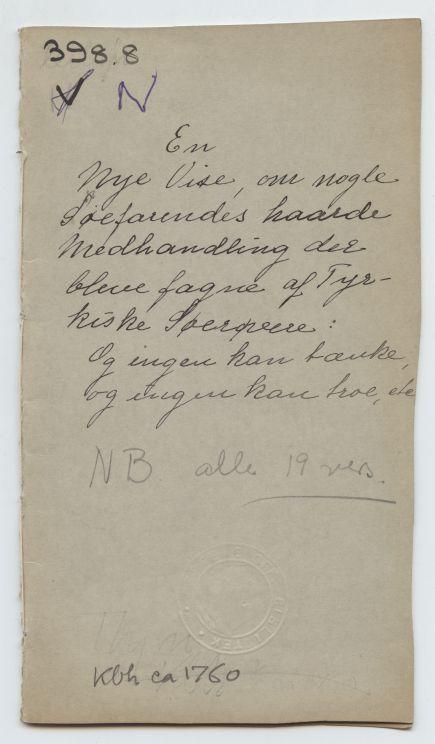 398.8
V N
En
Nye Vise, om nogle
Søefarendes haarde
Medhandling der
bleve fagne af Tyr-
kiske Søerøvere:
Og ingen kan tænke,
og ingen kan troe, etc
NB. alle 19 vers.
Kbh ca 1760